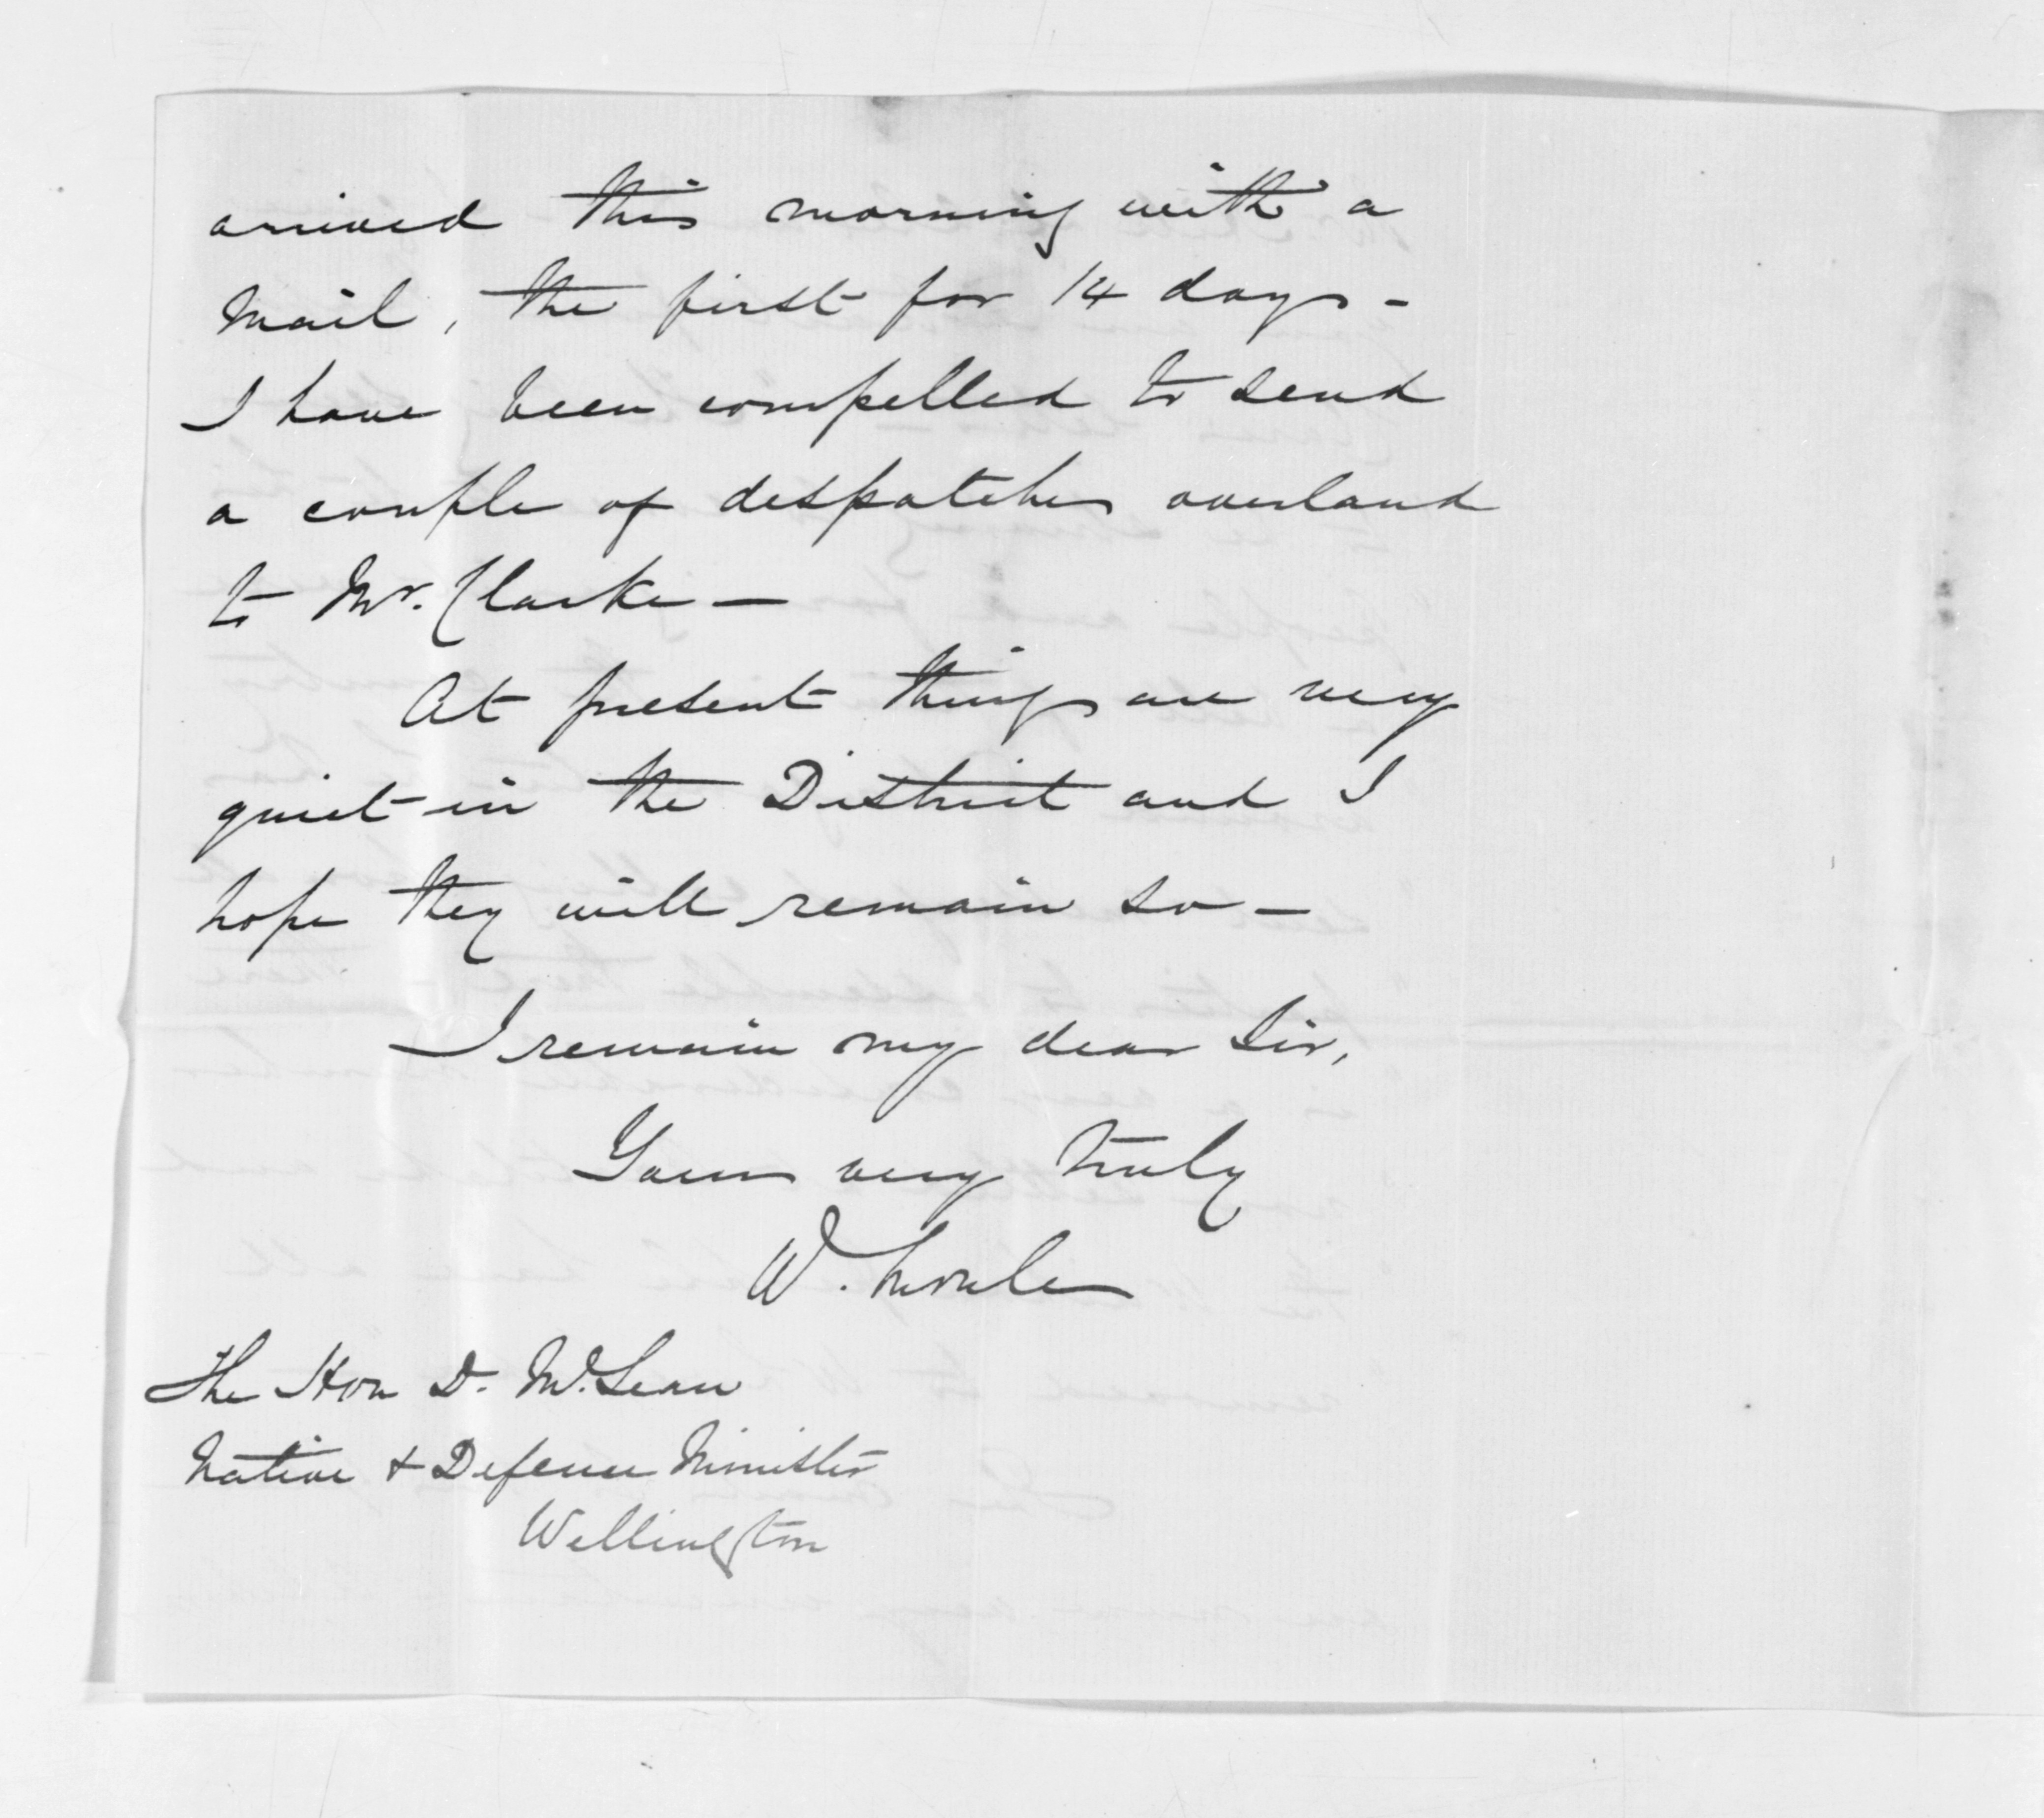 arrived this morning with a
Mail, the first for 14 days -
I have been compelled to send
a couple of despatches overland
to Mr. Clarke —
At present things are very
quiet in the District and I
hope they will remain so —
I remain my dear Sir,
Yours very truly
W. Moule
The Hon D. McLean
Native & Defence Minister
Wellington